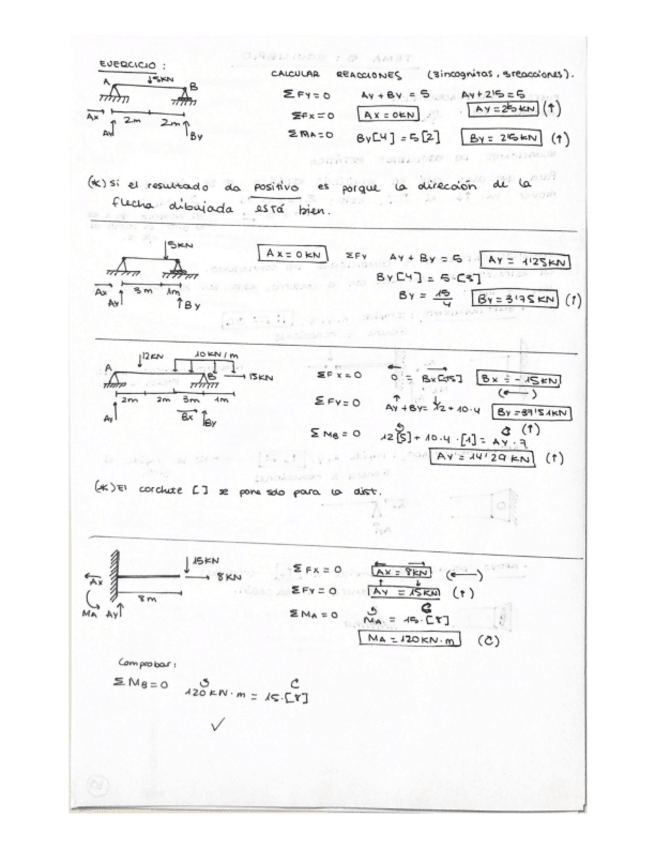 EJERCICIO:
CALCULAR REACCIONES (3 incognitas, 3 reacciones).
A 5KN B
Ax Ay 2m 2m By
ΣFy=0 Ay + By = 5 Ay+2'5=5 Ay=2'5KN (↑)
ΣFx=0 Ax=0KN
ΣMA=0 By[4] = 5[2] By= 2'5KN (↑)
(*) Si el resultado da positivo es porque la dirección de la
flecha dibujada está bien.
5KN
Ax Ay 3m 1m By
Ax=0KN ΣFy Ay + By = 5 Ay = 1'25KN
By[4] = 5·[3]
By = 15/4 By=3'75KN (↑)
12KN 10KN/m
A B 15KN
2m 2m 3m 1m
Ay Bx By
ΣFx=0 0 = Bx[15] Bx=-15KN
(←)
ΣFy=0 Ay+By= 12+10·4 By=37'51KN
(↑)
ΣMB=0 12[5]+10·4·[1]= Ay·7
Ay=14'29KN (↑)
(*) El corchete [ ] se pone solo para la dist.
15KN
8KN
Ax
8m
MA Ay
ΣFx=0 Ax=8KN (←)
ΣFy=0 Ay=15KN (↑)
ΣMA=0 MA = 15·[8]
MA=120KN·m
Comprobar:
ΣMB=0 120KN·m = 15·[8]
✓